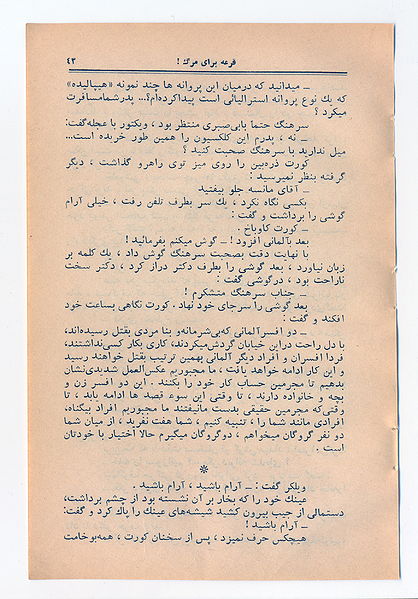 قرعه برای مرگ ! ۴۳
ـ میدانید که درمیان این پروانه ها چند نمونه «هیپالیده»
که یك نوع پروانه استرالیائی است پیداکرده‌ام؟... پدرشمامسافرت
میکرد ؟
سرهنگ حتما بابی‌صبری منتظر بود ، ویکتور با عجله‌گفت:
ـ نه ، پدرم این کلکسیون را همین طور خریده است...
میل ندارید با سرهنگ صحبت کنید ؟
کورت ذره‌بین را روی میز توی راهرو گذاشت ، دیگر
گرفته بنظر نمیرسید :
ـ آقای مانسه جلو بیفتید
بکسی نگاه نکرد ، یك سر بطرف تلفن رفت ، خیلی آرام
گوشی را برداشت و گفت :
ـ کورت کاوباخ .
بعد بآلمانی افزود ! ـ گوش میکنم بفرمائید !
با نهایت دقت بصحبت سرهنگ گوش داد ، یك کلمه بر
زبان نیاورد ، بعد گوشی را بطرف دکتر دراز کرد ، دکتر سخت
ناراحت بود ، درگوشی گفت :
ـ جناب سرهنگ متشکرم !
بعد گوشی را سرجای خود نهاد . کورت نگاهی بساعت خود
افکند و گفت :
ـ دو افسرآلمانی که‌بی‌شرمانه‌و بنا مردی بقتل رسیده‌اند،
با دل راحت دراین خیابان گردش‌میکردند، کاری بکار کسی‌نداشتند،
فردا افسران و افراد دیگر آلمانی بهمین ترتیب بقتل خواهند رسید
و این کار ادامه خواهد یافت ، ما مجبوریم عکس‌العمل شدیدی‌نشان
بدهیم تا مجرمین حساب کار خود را بکنند . این دو افسر زن و
بچه و خانواده دارند ، تا وقتی این سوء قصد ها ادامه یابد ، تا
وقتی‌که مجرمین حقیقی بدست مانیفتند ما مجبوریم افراد بیگناه،
افرادی مانند شما را ، تنبیه کنیم ، شما هفت نفرید ، از میان شما
دو نفر گروگان میخواهم ، دوگروگان میگیرم حالا اختیار با خودتان
است .
*
ویلکر گفت : ـ آرام باشید ، آرام باشید .
عینك خود را که بخار بر آن نشسته بود از چشم برداشت،
دستمالی از جیب بیرون کشید شیشه‌های عینك را پاك کرد و گفت:
ـ آرام باشید !
هیچکس حرف نمیزد ، پس از سخنان کورت ، همه‌بوخامت